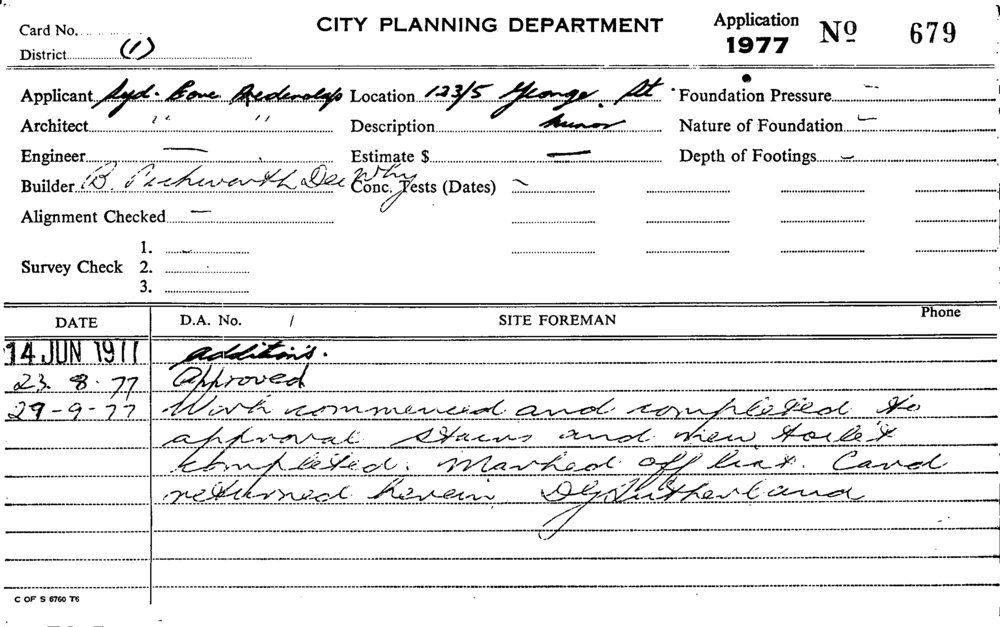 Card No. CITY PLANNING DEPARTMENT Application 1977 Nº 679
District (1)
Applicant Syd. Location 123/5 George St Foundation Pressure —
Architect " " Description minor Nature of Foundation —
Engineer — Estimate $ — Depth of Footings —
Builder B. Peckworth Dee Why Conc. Tests (Dates) —
Alignment Checked —
1.
Survey Check 2.
3.
DATE D.A. No. / SITE FOREMAN Phone
14 JUN 1977 additions.
23. 8. 77 Approved
29-9-77 Work commenced and completed to
approval Stairs and new toilet
completed. Marked off list. Card
returned herein DG Sutherland
C OF S 6760 T6